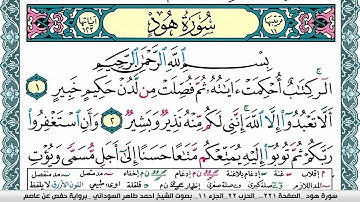 سُورَةُ هُودٍ
بِسْمِ اللَّهِ الرَّحْمَٰنِ الرَّحِيمِ
الٓر ۚ كِتَٰبٌ أُحْكِمَتْ ءَايَٰتُهُۥ ثُمَّ فُصِّلَتْ مِن لَّدُنْ حَكِيمٍ خَبِيرٍ ١
أَلَّا تَعْبُدُوٓا۟ إِلَّا ٱللَّهَ ۚ إِنَّنِى لَكُم مِّنْهُ نَذِيرٌ وَبَشِيرٌ ٢ وَأَنِ ٱسْتَغْفِرُوا۟
رَبَّكُمْ ثُمَّ تُوبُوٓا۟ إِلَيْهِ يُمَتِّعْكُم مَّتَٰعًا حَسَنًا إِلَىٰٓ أَجَلٍ مُّسَمًّى وَيُؤْتِ
سورة هود .. الصفحة ٢٢١ .. الحزب ٢٢ .. الجزء ١١ .. بصوت الشيخ احمد طاهر السوداني .. برواية حفص عن عاصم